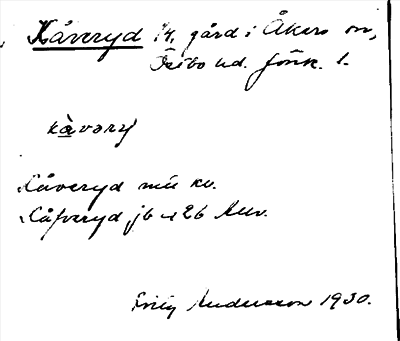 Kåveryd 1/4, gård i Åkers sn,
Östbo hd. Jönk. l.
kàvəry
Kåveryd mu kv.
Kåfveryd jb 26 Auv.
Fritz Andersson 1930.